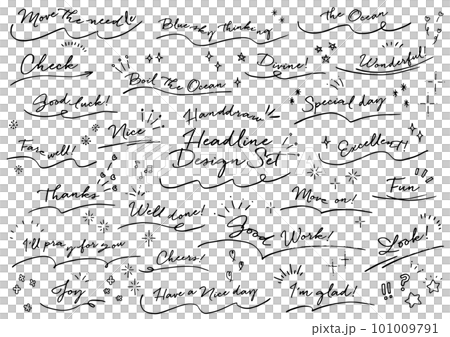 Move The needle
Blue sky Thinking
The Ocean
Check
Boil The Ocean
Divine!
Wonderful!
Good luck!
Handdraw
Special day
Farewell!
Nice
Headline
Design Set
Excellent!
Thanks
Well done!
Move on!
Fun
I'll pray for you
Good Work!
Look!
Cheers!
Joy
Have a Nice day
I'm glad!
!! ?
PIXTA
pixta.jp - 101009791